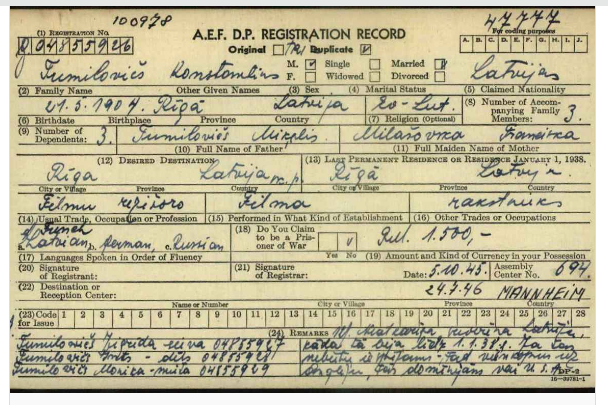 100978
47777
(1) REGISTRATION NO.
A.E.F. D.P. REGISTRATION RECORD
For coding purposes
04855926
Original Duplicate
A. B. C. D. E. F. G. H. I. J.
M. Single Married
Tumilovičs Konstantins F. Widowed Divorced Latvijas
(2) Family Name Other Given Names (3) Sex (4) Marital Status (5) Claimed Nationality
21.5.1904. Rīgā Latvija Ev-Lut. (8) Number of Accompanying Family Members: 3.
(6) Birthdate Birthplace Province Country (7) Religion (Optional)
(9) Number of Dependents: 3. Tumilovičs Miķelis Franciska
(10) Full Name of Father (11) Full Maiden Name of Mother
(12) DESIRED DESTINATION (13) LAST PERMANENT RESIDENCE OR RESIDENCE JANUARY 1, 1938.
Rīga Latvija Rīgā Latvija
City or Village Province Country City or Village Province Country
Filmu režisors Filma rakstnieks
(14) Usual Trade, Occupation or Profession (15) Performed in What Kind of Establishment (16) Other Trades or Occupations
French
a. Latvian, b. German, c. Russian (18) Do You Claim to be a Prisoner of War RM. 1.500,-
(17) Languages Spoken in Order of Fluency Yes No (19) Amount and Kind of Currency in your Possession
(20) Signature of Registrant: (21) Signature of Registrar: Date: 5.10.45. Assembly Center No. 694.
(22) Destination or Reception Center: 24.7.46 MANNHEIM
Name or Number City or Village Province Country
(23) Code for Issue 1 2 3 4 5 6 7 8 9 10 11 12 13 14 15 16 17 18 19 20 21 22 23 24 25 26 27 28
(24) REMARKS
Tumilovičs 04855927 kāda tā bija līdz 1.1.38.g. Ja tas
Tumilovičs - dēls 04855928
Tumilovičs Monica - meita 04855929
DP-2
16—39781-1